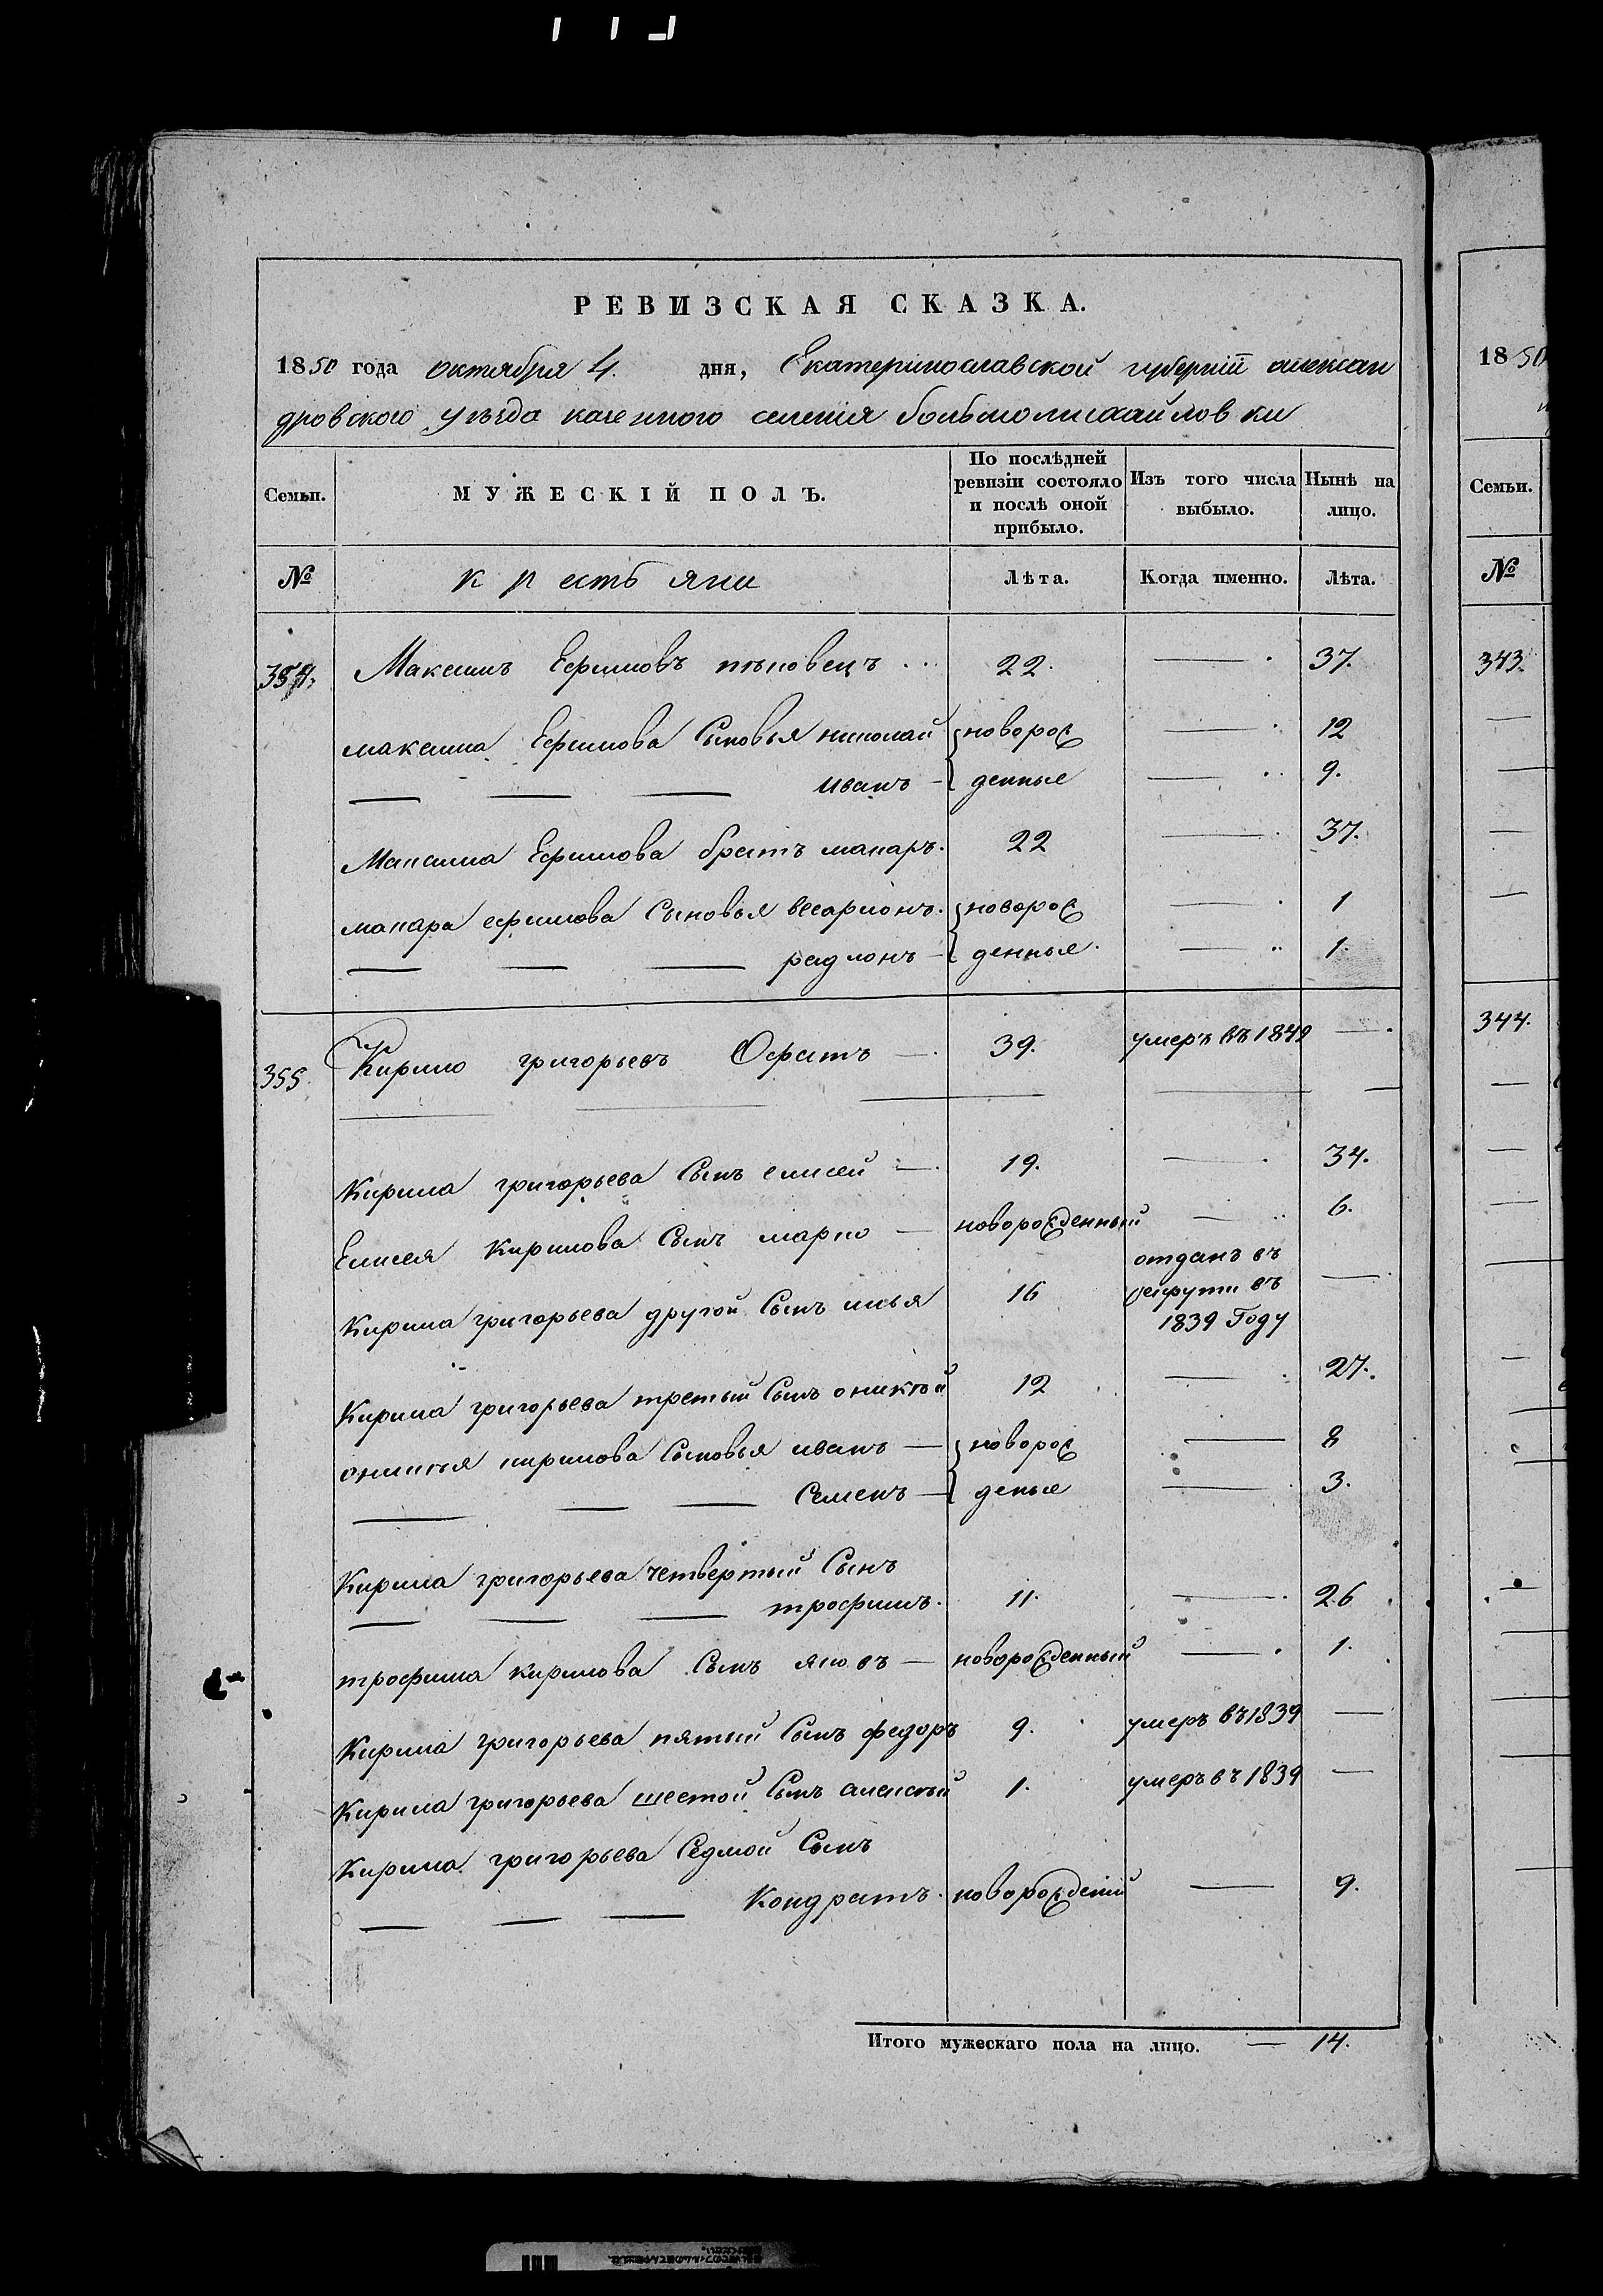 РЕВИЗСКАЯ СКАЗКА.
1850 года октября 4. дня, Екатеринославской губерніи алексан
дровского уѣзда казенного селенія болшомихайловки
Семьи. МУЖЕСКІЙ ПОЛЪ. По послѣдней ревизіи состояло и послѣ оной прибыло. Изъ того числа выбыло. Нынѣ на лицо.
№ крестьяни Лѣта. Когда именно. Лѣта.
354. Максимъ Ефимовъ 22. — 37.
максима Ефимова Сыновья николай новорож — 12
— — — иванъ — денные — 9.
Максима Ефимова братъ макаръ. 22 — 37.
макара ефимова Сыновья весарионъ. новорож — 1
— — — радионъ — денные. — 1.
355. Кирило григорьевъ — 39. умеръ въ 1849 —.
Кирила григорьева Сынъ елисей — 19. — 34.
Елисея Кирилова Сынъ марко — новорожденный — 6.
Кирила григорьева другой Сынъ илья 16 отданъ въ
рекрути въ —
1839 Году
Кирила григорьева третьій Сынъ оникѣй 12 — 27.
оникѣя кирилова Сыновья иванъ — новорож — 8
— — — Семенъ — деные — 3.
Кирила григорьева четвертый Сынъ
— — — трофимъ. 11. — 26
трофима кирилова Сынъ яковъ — новорожденный — 1.
Кирила григорьева пятый Сынъ федоръ 9. умеръ въ 1839 —
Кирила григорьева шестой Сынъ алексѣй 1. умеръ въ 1839 —
Кирила григорьева Седмой Сынъ
— — — Кондратъ. новорожденій — 9.
Итого мужескаго пола на лицо. — 14.
18 50
Семьи.
№
343.
344.